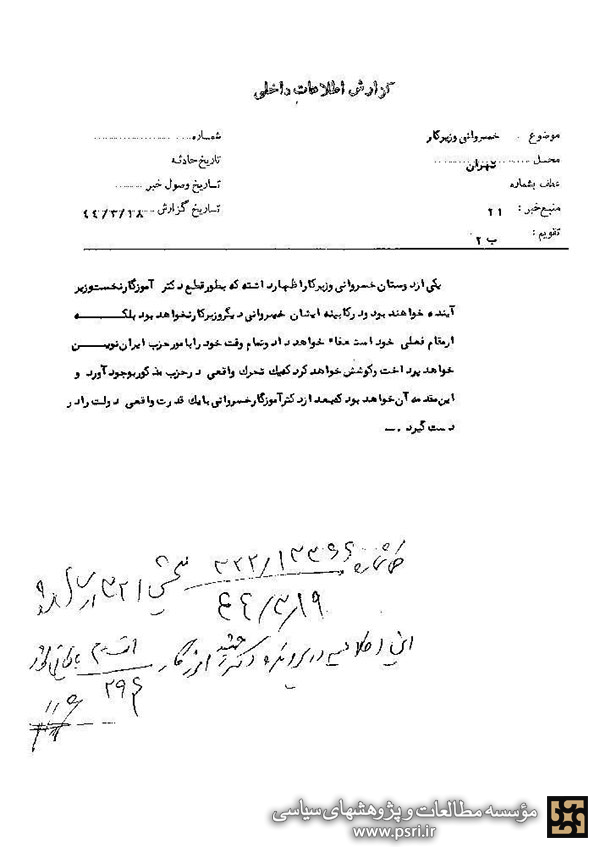 گزارش اطلاعات داخلی
موضوع : خسروانی وزیر کار
شماره
محل تهران
تاریخ حادثه
عطف بشماره
تاریخ وصول خبر
منبع خبر : ۱۱
تاریخ گزارش ۴۴/۳/۱۸
تقویم : ب ۲
یکی از دوستان خسروانی وزیر کار اظهار داشته که بطور قطع دکتر آموزگار نخست وزیر
آینده خواهند بود و در کابینه ایشان خسروانی دیگر وزیر کار نخواهد بود بلکه
از مقام فعلی خود استعفاء خواهد داد و تمام وقت خود را بامور حزب ایران نوین
خواهد پرداخت و کوشش خواهد کرد که یک تحرک واقعی در حزب مذکور بوجود آورد و
این مقدمه آن خواهد بود که بعد از دکتر آموزگار خسروانی با یک قدرت واقعی دولت را در
دست گیرد .ــ
۳۲۲/۱۳۳۶۶ بخش ۳۲۱ ارسال
۴۴/۳/۱۹
این اطلاعیه در پرونده دکتر جمشید آموزگار
۲۹۶
مؤسسه مطالعات و پژوهشهای سیاسی
www.psri.ir